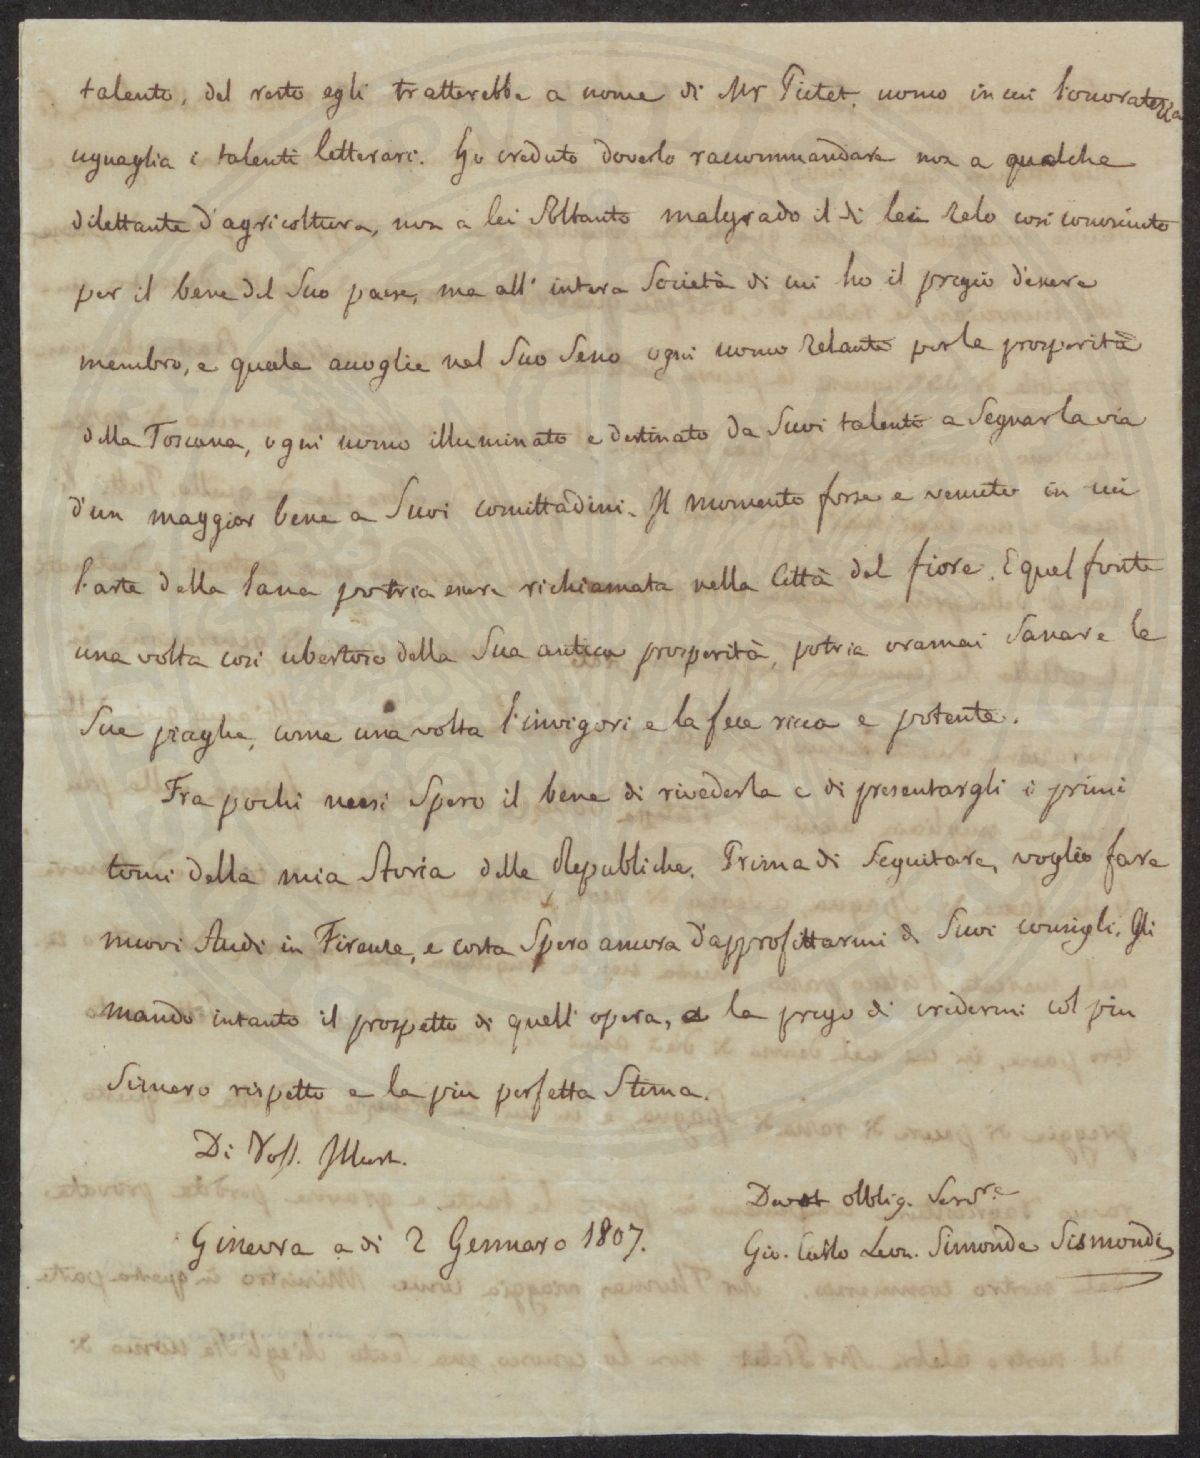 talento, del resto egli tratterebbe a nome di Mr Pictet, uomo in cui l'onoratezza
uguaglia i talenti letterari. Ho creduto doverlo raccommandare non a qualche
dilettante d'agricoltura, non a lei Soltanto malgrado il di lei Zelo cosi conosciuto
per il bene del Suo paese, ma all' intera Società di cui ho il pregio d'essere
membro, e quale accoglie nel Suo Seno ogni uomo Zelante per la prosperità
della Toscana, ogni uomo illuminato e destinato da Suoi talenti a Segnar la via
d'un maggior bene a Suoi comittadini. Il momento forse e venuto in cui
l'arte della lana potria essere richiamata nella Città del fiore. E quel fonte
una volta cosi ubertoso della Sua antica prosperità, potria oramai Sanare le
Sue piaghe, come una volta l'invigori e la fece ricca e potente.
Fra pochi mesi Spero il bene di rivederla e di presentargli i primi
tomi della mia Storia delle Republiche. Prima di Seguitare, voglio fare
nuovi Studi in Firenze, e costa Spero ancora d'approfittarmi di Suoi consigli. Gli
mando intanto il prospetto di quell' opera, e la prego di credermi col piu
Sincero rispetto e la piu perfetta Stima.
Di Voss. Illust.
Devot obblig. Servre
Ginevra a di 2 Gennaro 1807.
Gio. Carlo Leon. Simonde Sismondi